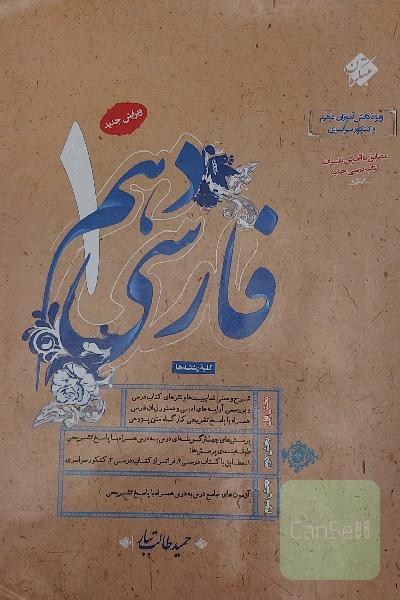 مبتکران
ویژه دانش‌آموزان دهم
و کنکور سراسری
مطابق با آخرین تغییرات
کتاب درسی جدید
ویرایش جدید
فارسی دهم
۱
کلیهٔ رشته‌ها
بخش اول
شرح و معنی تمام بیت‌ها و نثرهای کتاب درسی
و بررسی آرایه‌های ادبی و دستور زبان فارسی
همراه با پاسخ تشریحی کارگاه متن‌پژوهی
بخش دوم
پرسش‌های چهارگزینه‌ای درس به درس همراه با پاسخ تشریحی
طبقه‌بندی پرسش‌ها:
۱. مطابق با کتاب درسی ۲. فراتر از کتاب درسی ۳. کنکور سراسری
بخش سوم
آزمون‌های جامع درس به درس همراه با پاسخ تشریحی
حمید طالب تبار
CanSell